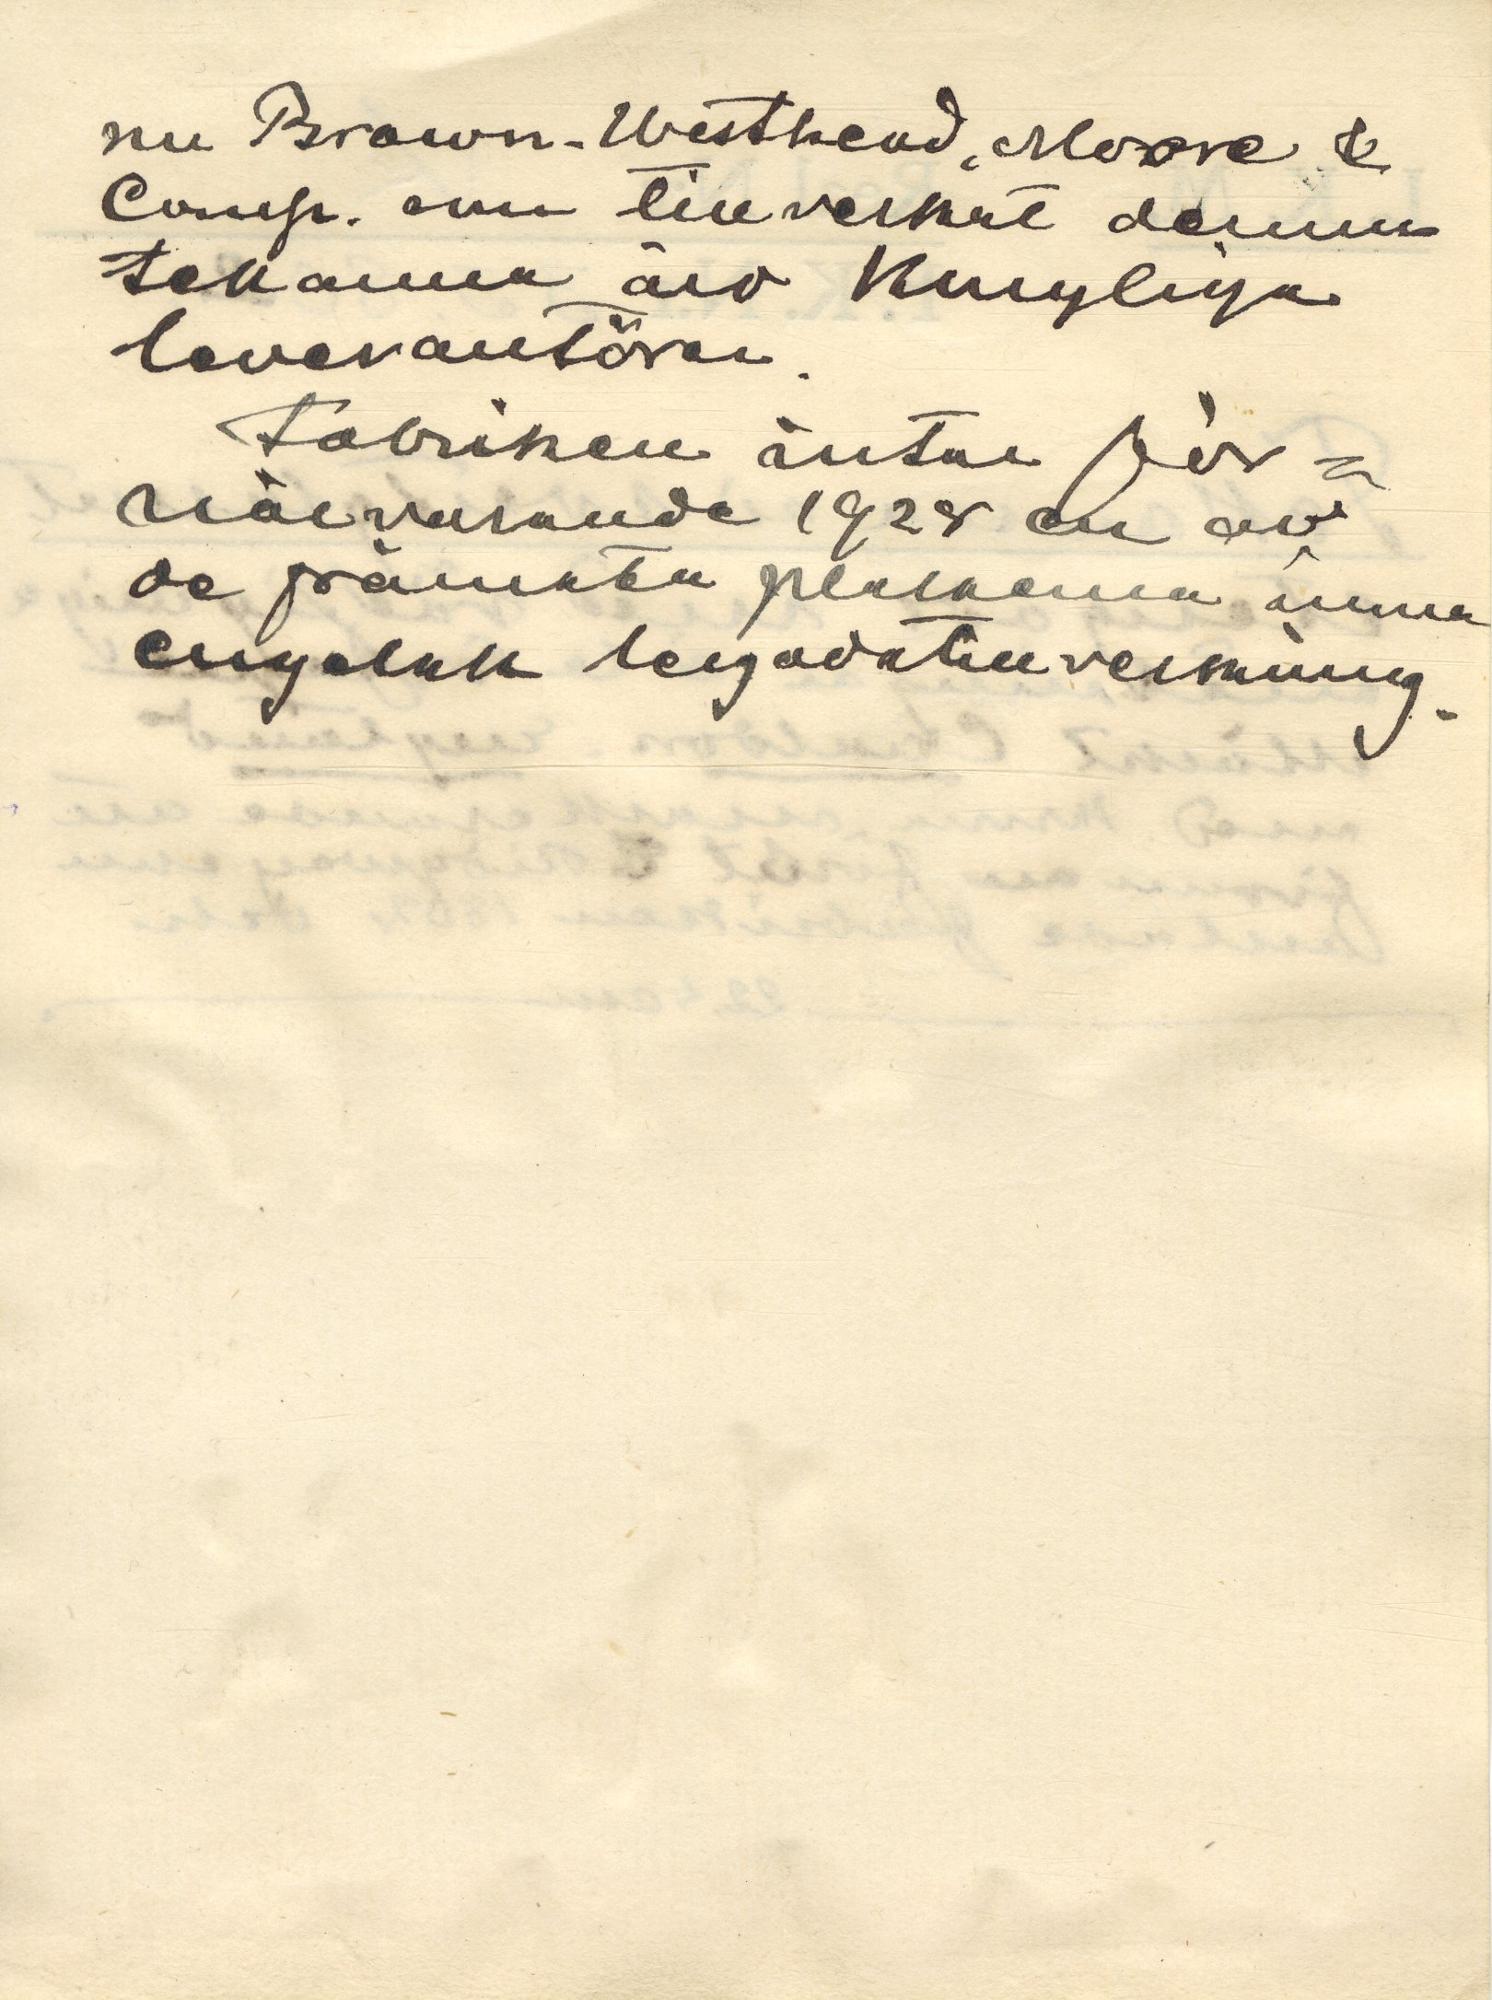 nu Brown-Westhead, Moore &
Comp. som tillverkat denna
tekanna äro Kungliga
leverantörer.
Fabriken intar för=
närvarande 1928 en av
de främsta platserna inom
engelsk lergodstillverkning.